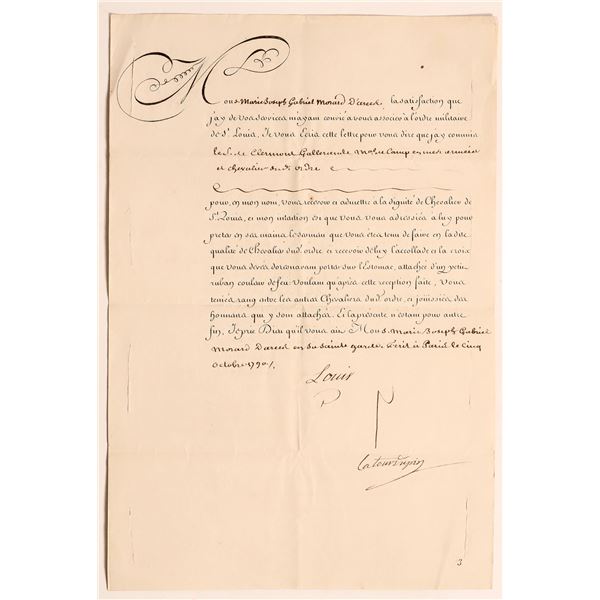 Mons Marie Joseph Gabriel Morard D'arces, la satisfaction que
j'ay de vos services m'ayant convié a vous associer à l'ordre militaire
de St Louis, Je vous Ecris cette lettre pour vous dire que j'ay commis
le S. de Clermont Gallerande Mal de Camp en mes armées
et chevalier dud. ordre
pour, en mon nom, vous recevoir et admettre à la dignité de Chevalier de
St Louis, et mon intention est que vous vous adressiés à luy pour
prêter en ses mains le serment que vous êtes tenu de faire en ladite
qualité de Chevalier dud. ordre et recevoir de luy l'accollade et la croix
que vous devés doresnavant porter sur l'Estomac, attachée d'un petit
ruban couleur de feu: Voulant qu'après cette reception faite, Vous
teniés rang entre les autres Chevaliers dud. ordre, et jouissiés des
honneurs qui y sont attachés. Et la presente n'étant pour autre
fin, Je prie Dieu qu'il vous ait Mons Marie Joseph Gabriel
Morard D'arces en sa sainte garde. Ecrit à Paris le cinq
octobre 1790./.
Louis
La tour Dupin
3